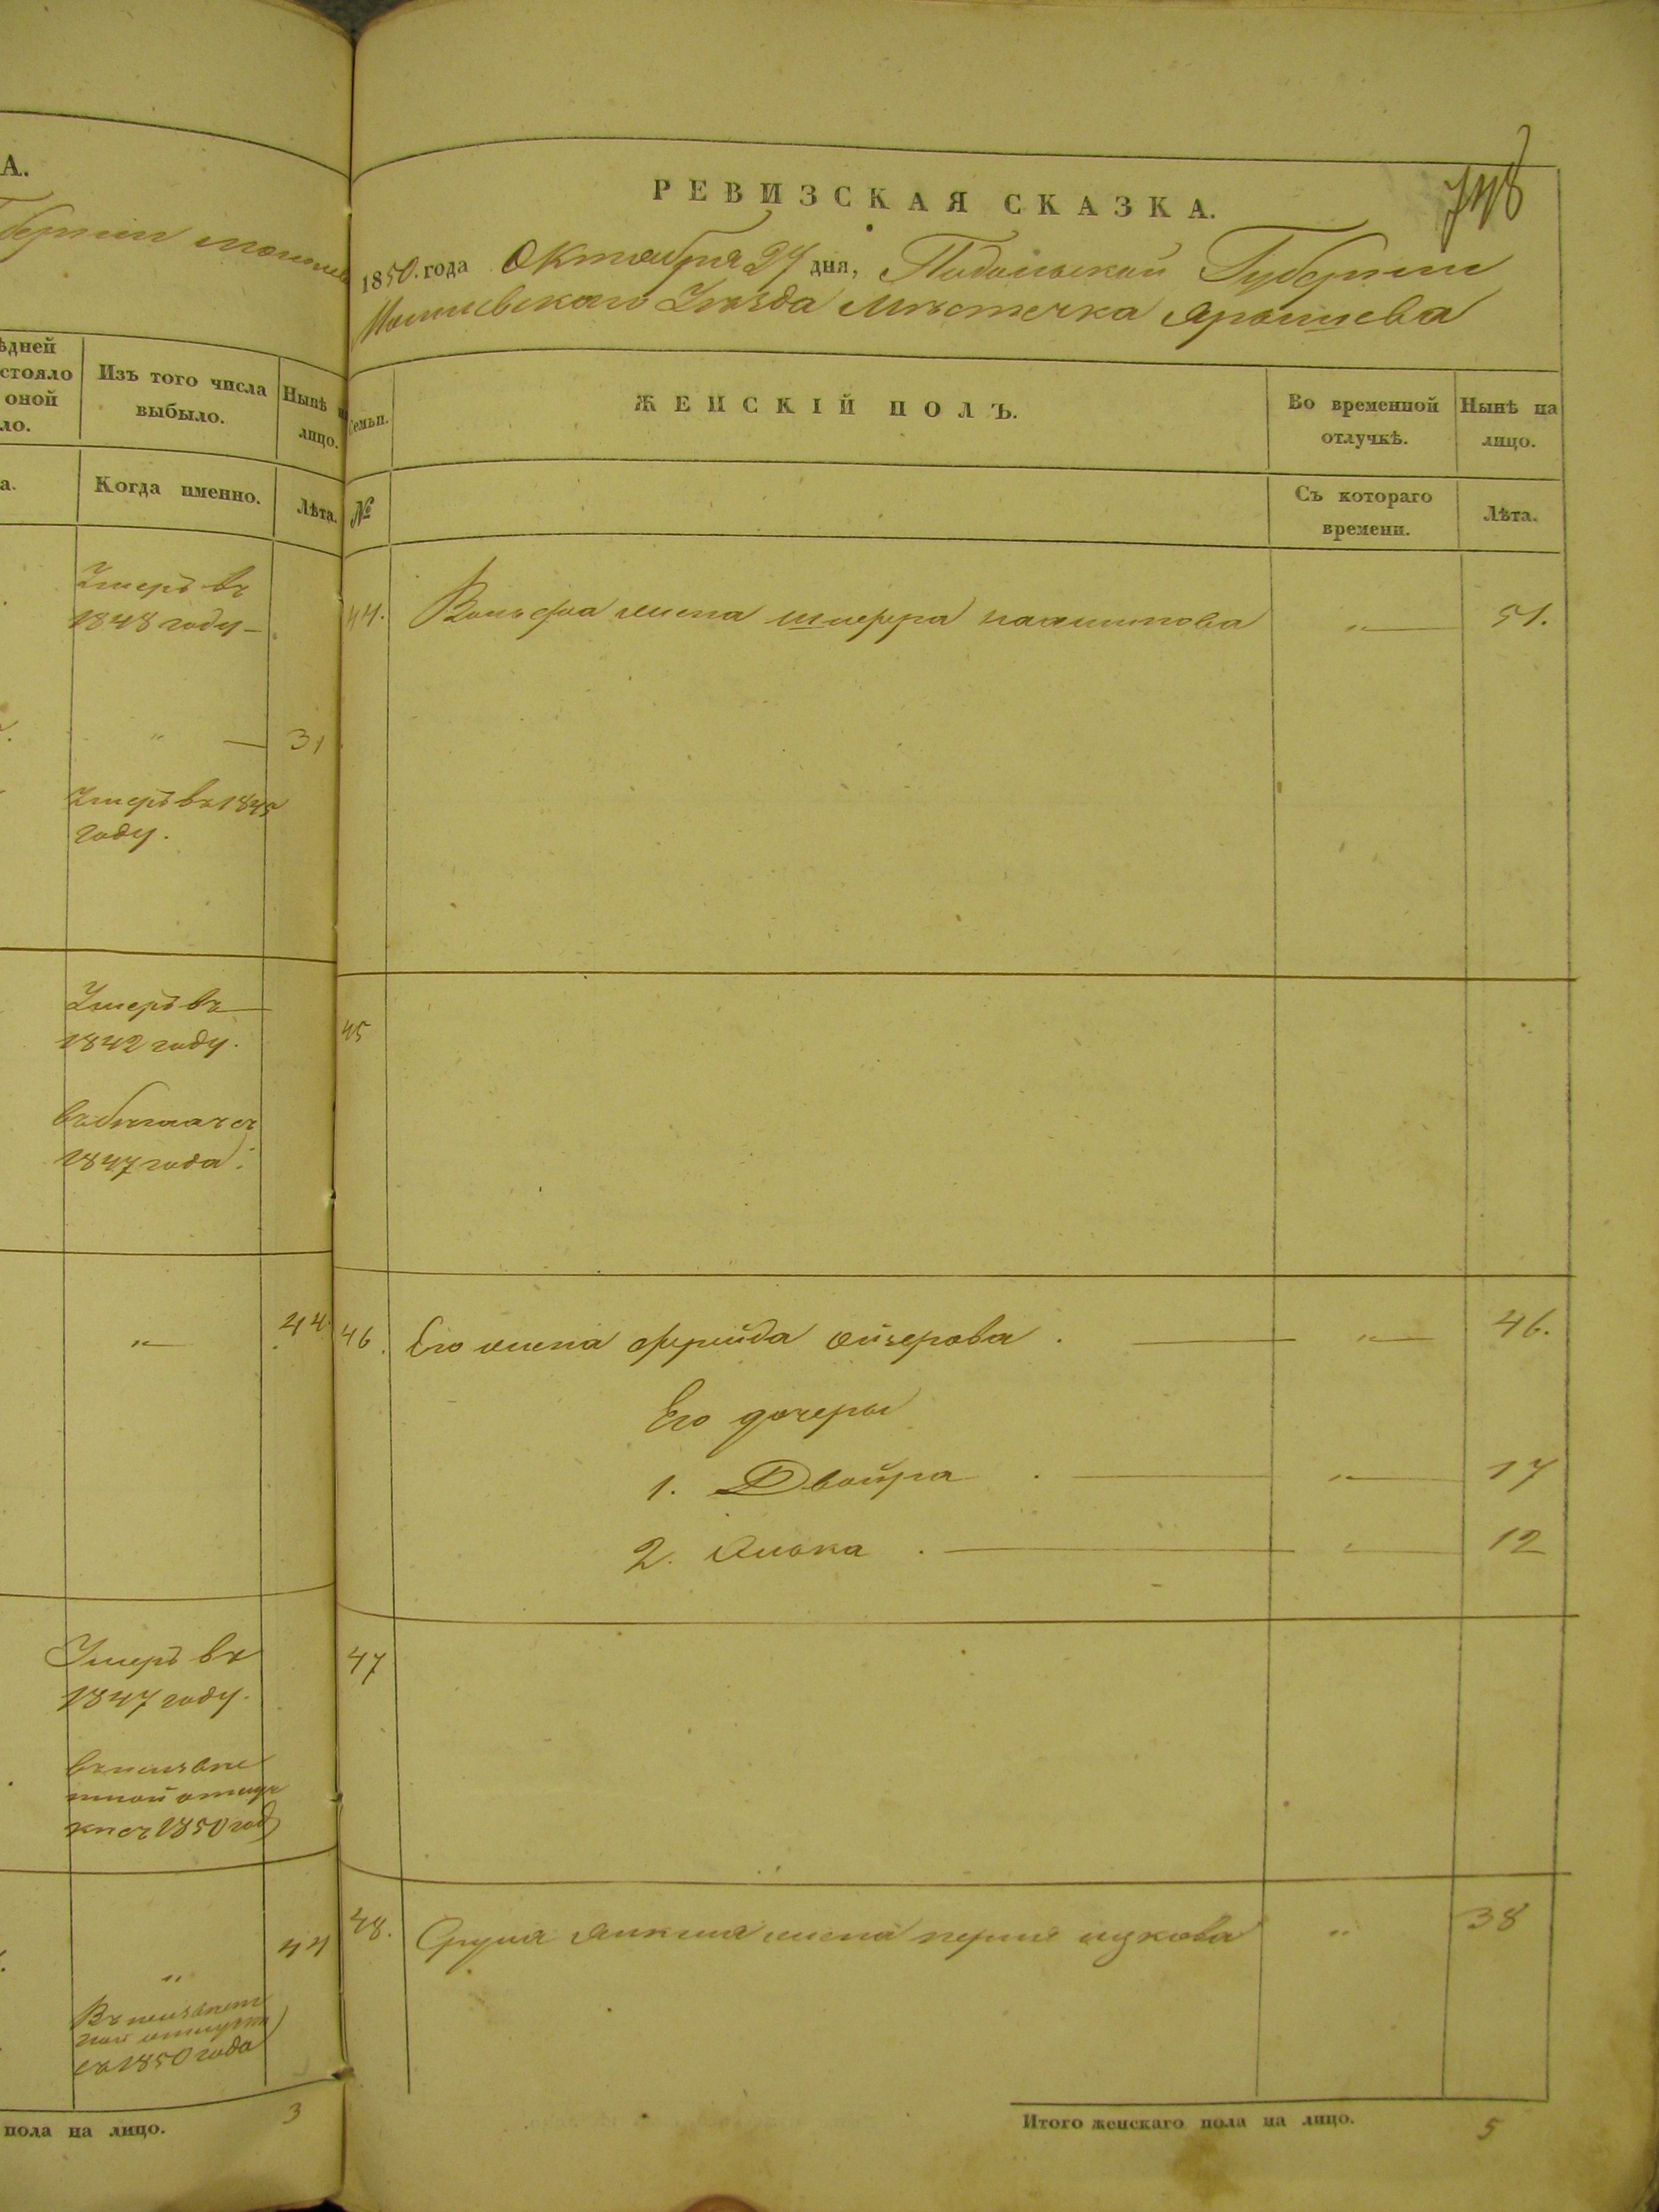 А.
губернiи могилев
ѣдней
стояло
оной
ло.
Изъ того числа
выбыло.
Нынѣ на
лицо.
а.
Когда именно.
Лѣта.
Умеръ въ
1848 году
" 31
Умеръ въ 1845
году.
Умеръ въ
1842 году.
въ бѣгахъ съ
1847 года.
" 44
Умеръ въ
1847 году.
1850 год
" 44
съ 1850 года
пола на лицо. 3
РЕВИЗСКАЯ СКАЗКА.
748
1850 года Октября 27 дня, Подольской Губернiи
Могилевскаго Уѣзда Мѣстечка Ярышева
Семьи.
ЖЕНСКІЙ ПОЛЪ.
Во временной
отлучкѣ.
Нынѣ на
лицо.
№
Съ котораго
времени.
Лѣта.
44. Вольфа жена " 51.
45
46. Его жена Фрейда Ойзерова . " 46.
Его дочеры
1. Двойра . " 17
2. . " 12
47
48. жена " 38
Итого женскаго пола на лицо. 5